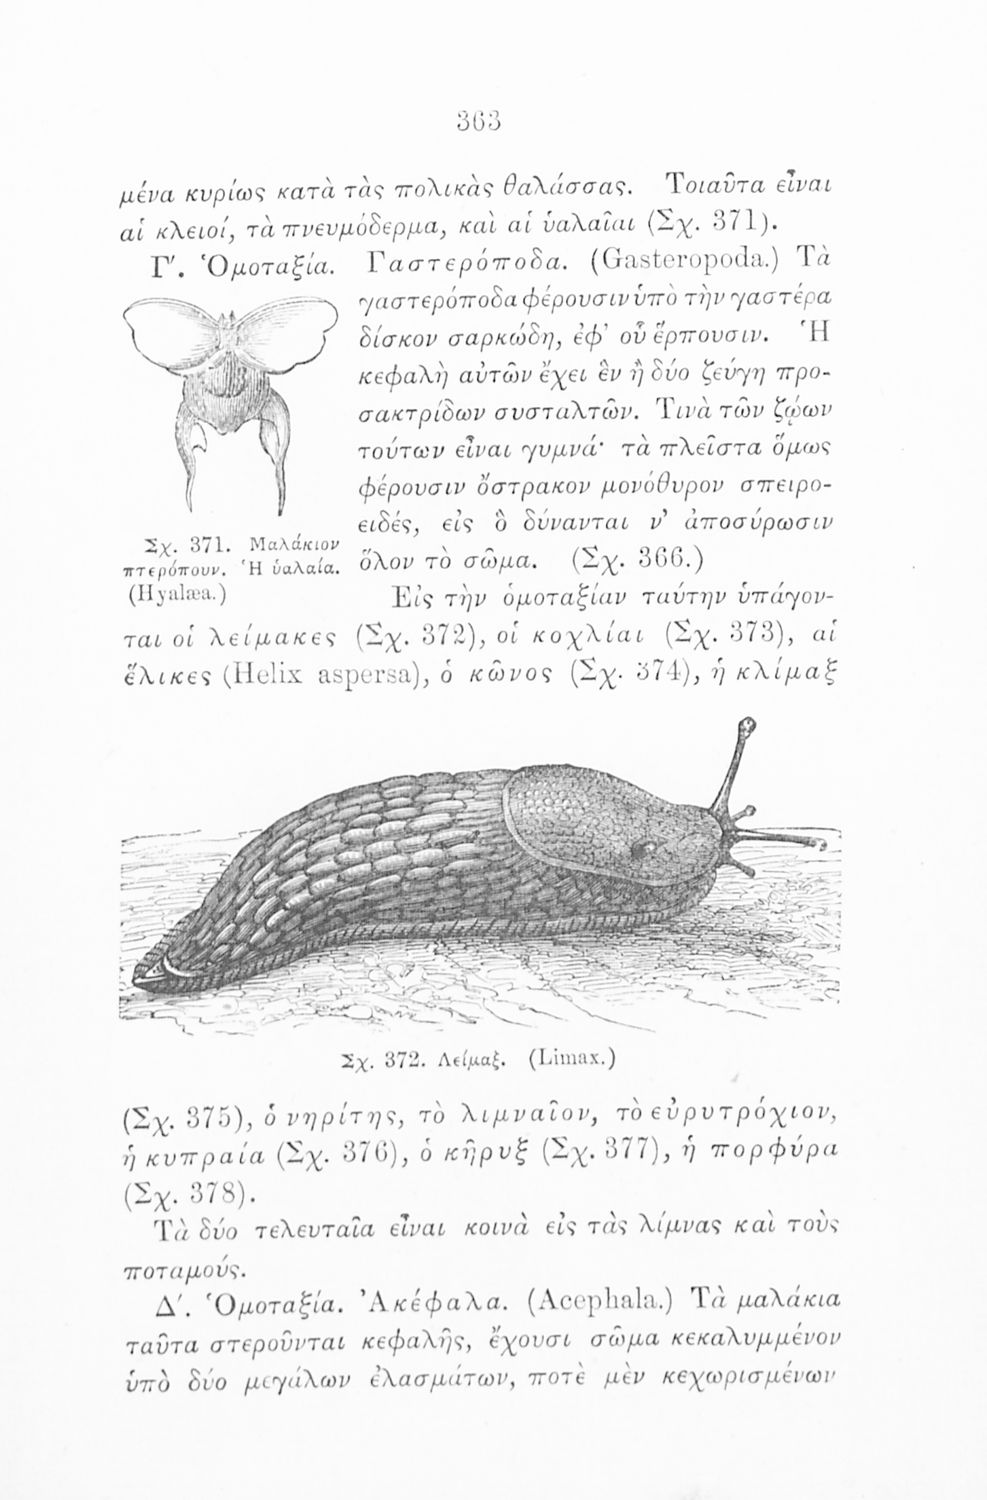 363
μένα κυρίως κατὰ τὰς πολικὰς θαλάσσας. Τοιαῦτα εἶναι
αἱ κλειοί, τὰ πνευμόδερμα, καὶ αἱ ὑαλαῖαι (Σχ. 371).
Γ′. Ὁμοταξία. Γαστερόποδα. (Gasteropoda.) Τὰ
γαστερόποδα φέρουσιν ὑπὸ τὴν γαστέρα
δίσκον σαρκώδη, ἐφ’ οὗ ἕρπουσιν. Ἡ
κεφαλὴ αὐτῶν ἔχει ἓν ἢ δύο ζεύγη προ-
σακτρίδων συσταλτῶν. Τινὰ τῶν ζῴων
τούτων εἶναι γυμνά· τὰ πλεῖστα ὅμως
φέρουσιν ὄστρακον μονόθυρον σπειρο-
ειδές, εἰς ὃ δύνανται ν’ ἀποσύρωσιν
ὅλον τὸ σῶμα. (Σχ. 366.)
Σχ. 371. Μαλάκιον
πτερόπουν. Ἡ ὑαλαία.
(Hyalæa.)
Εἰς τὴν ὁμοταξίαν ταύτην ὑπάγον-
ται οἱ λείμακες (Σχ. 372), οἱ κοχλίαι (Σχ. 373), αἱ
ἕλικες (Helix aspersa), ὁ κῶνος (Σχ. 374), ἡ κλίμαξ
Σχ. 372. Λείμαξ. (Limax.)
(Σχ. 375), ὁ νηρίτης, τὸ λιμναῖον, τὸ εὐρυτρόχιον,
ἡ κυπραία (Σχ. 376), ὁ κῆρυξ (Σχ. 377), ἡ πορφύρα
(Σχ. 378).
Τὰ δύο τελευταῖα εἶναι κοινὰ εἰς τὰς λίμνας καὶ τοὺς
ποταμούς.
Δ′. Ὁμοταξία. Ἀκέφαλα. (Acephala.) Τὰ μαλάκια
ταῦτα στεροῦνται κεφαλῆς, ἔχουσι σῶμα κεκαλυμμένον
ὑπὸ δύο μεγάλων ἐλασμάτων, ποτὲ μὲν κεχωρισμένων